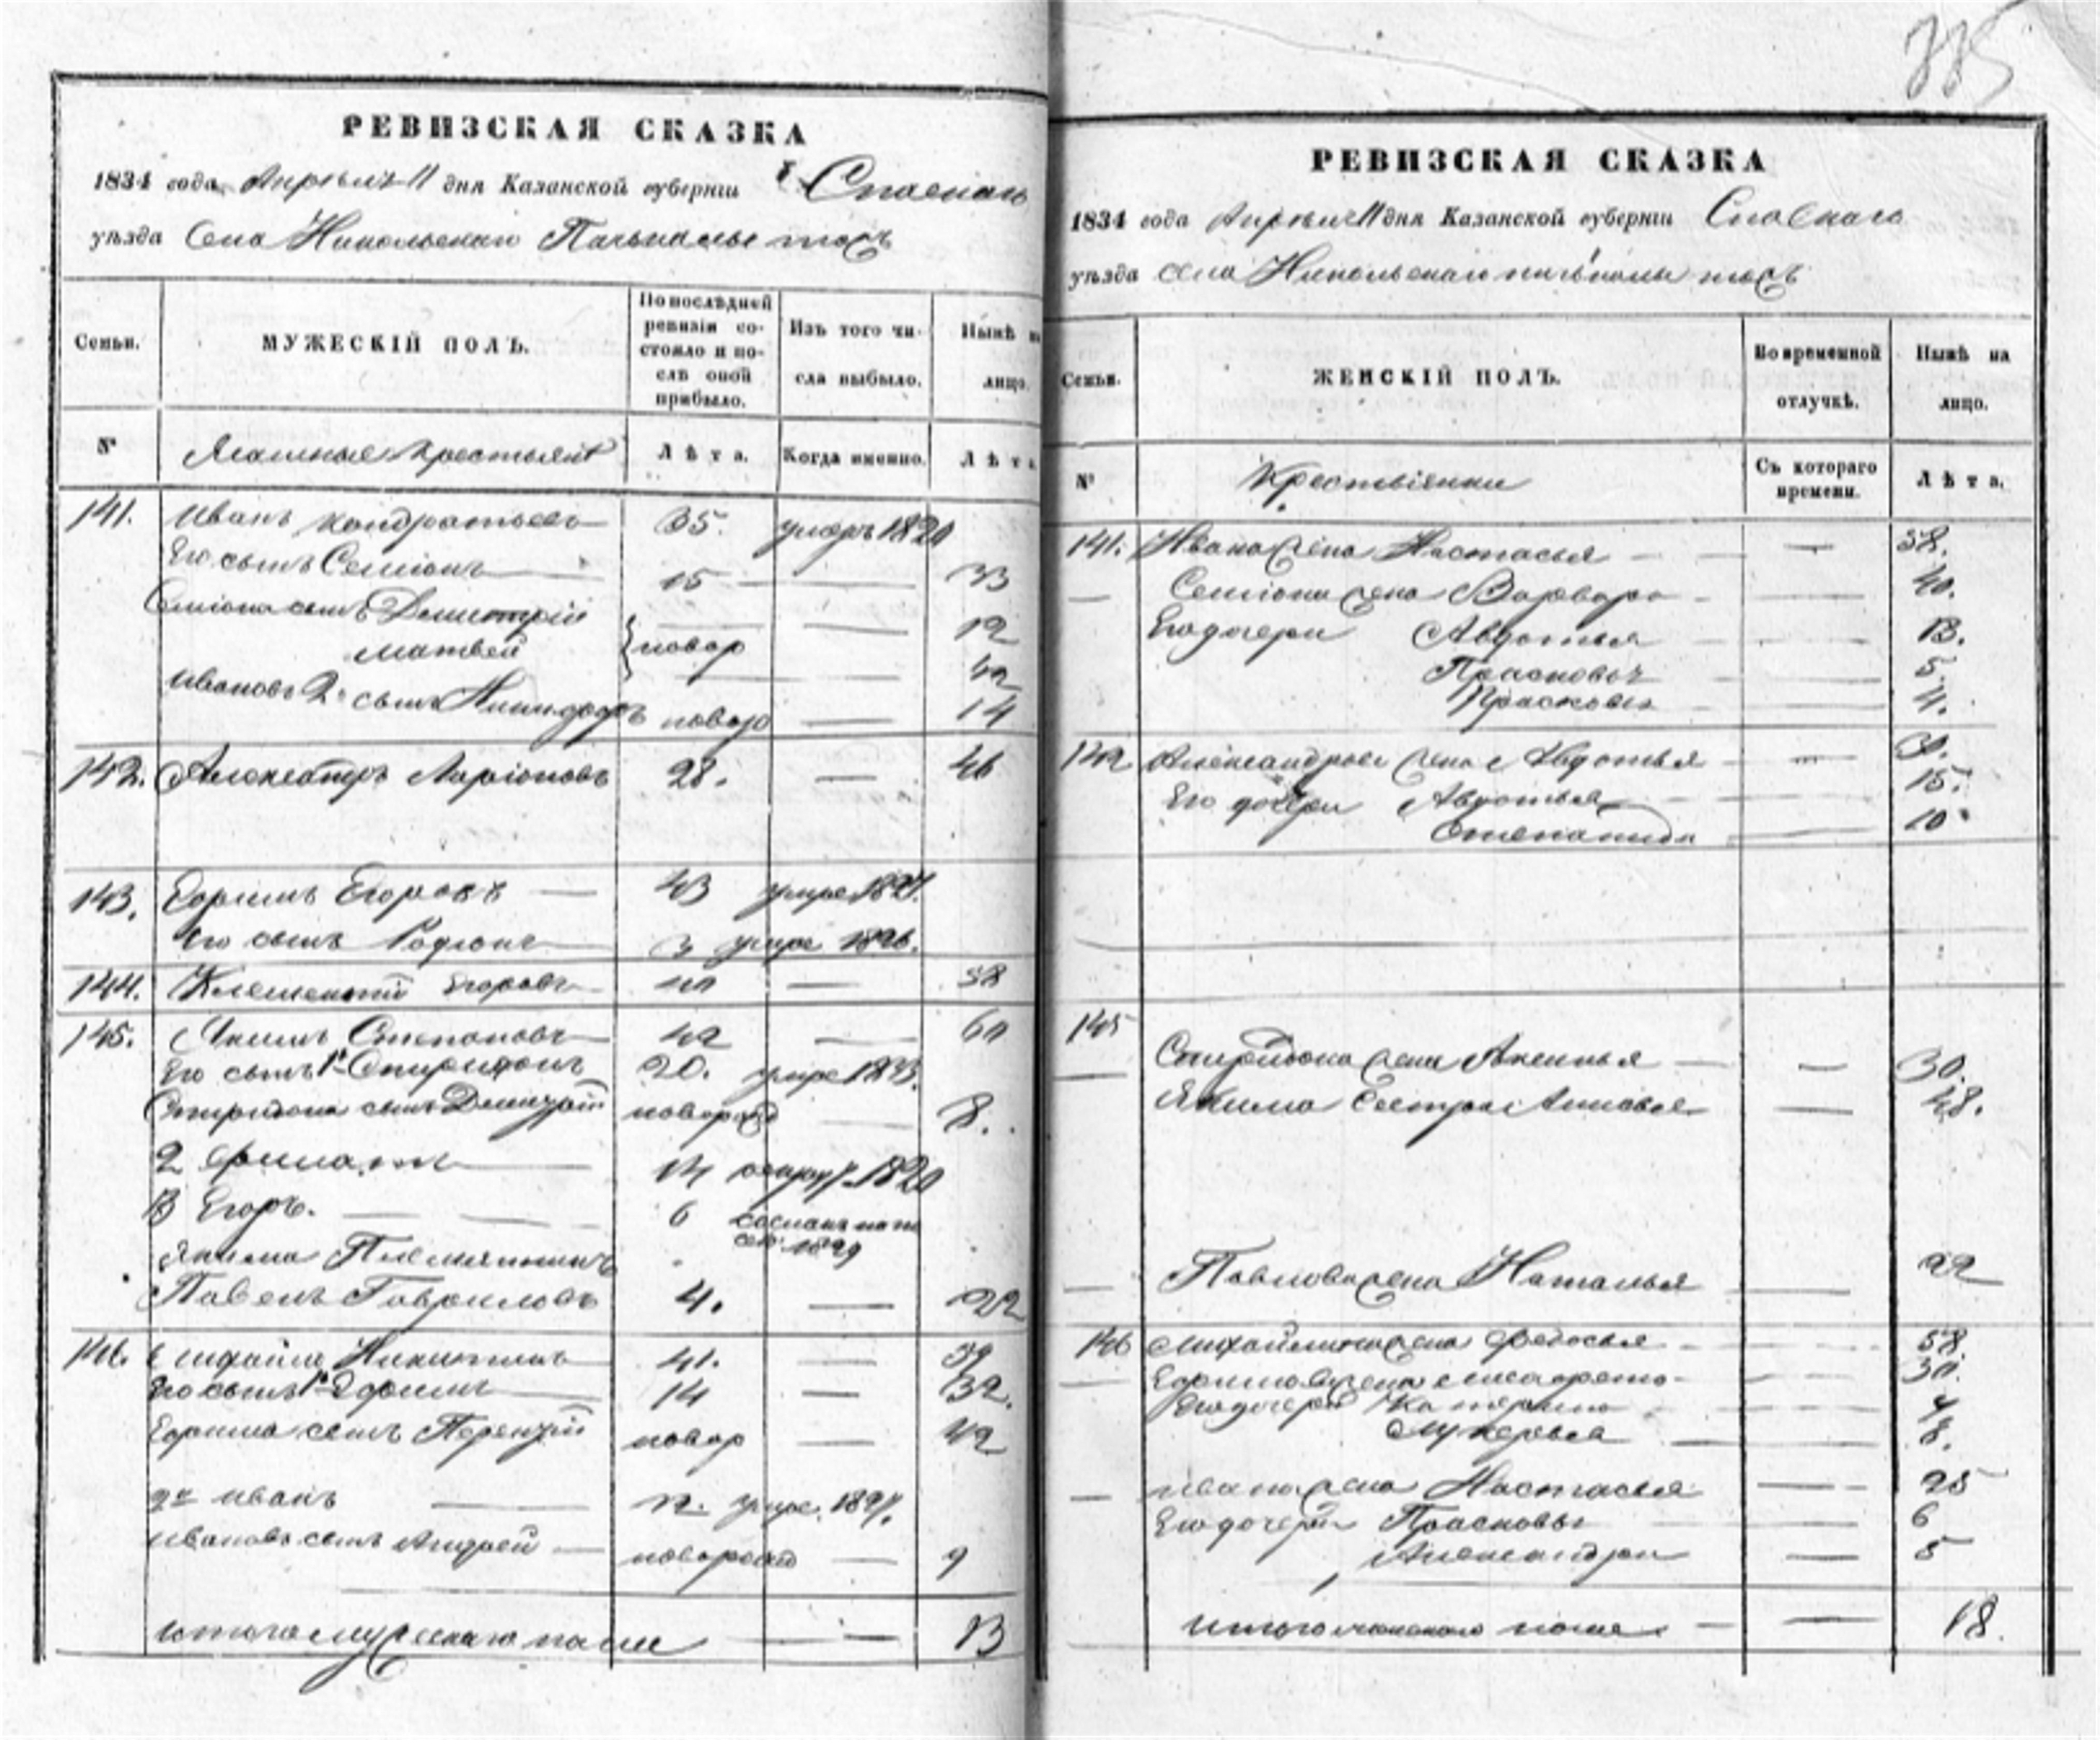 335
РЕВИЗСКАЯ СКАЗКА
1834 года Апреля 11 дня Казанской губернiи Спаскаго
уѣзда Села Никольскаго тожъ
Семьи. МУЖЕСКIЙ ПОЛЪ. По послѣдней ревизiи состояло и послѣ оной прибыло. Изъ того числа выбыло. Нынѣ на лицо.
№ Ясашные крестьяне Лѣта. Когда именно. Лѣта
141. Иванъ Кондратьевъ 35. умеръ 1820
Его сынъ Семіонъ 15 33
Семіона сынъ Дмитрій 12
Матвей новор
Ивановъ 2й сынъ Никифоръ новор 14
142. Александръ Ларіоновъ 28. 46
143. Ефимъ Егоровъ 43 умре 1827.
Его сынъ Родіонъ 3 умре 1826.
144. Климентій Егоровъ 58
145. Якимъ Степановъ 42 60
Его сынъ 1й Спиридонъ 20. умре 1833.
Спиридона сынъ Дмитрій новорож 8.
2 Филатъ 14 1820
3 Егоръ. 6 сосланъ на по
сел. 1829
Якима Племянникъ
Павелъ Гавриловъ 4. 22
146. Михайла Никитинъ 41. 59
Его сынъ 1й Ефимъ 14 32.
Ефима сынъ Терентій новор 12
2й Иванъ 12. умре. 1827.
Ивановъ сынъ Андрей новорожд 9
Итого мужескаго пола 13
РЕВИЗСКАЯ СКАЗКА
1834 года Апреля 11 дня Казанской губернiи Спаскаго
уѣзда села Никольскаго тожъ
Семьи. ЖЕНСКIЙ ПОЛЪ. Во временной отлучкѣ. Нынѣ на лицо.
№ Крестьянки Съ котораго времени. Лѣта.
141. Ивана жена Настасья 58.
Семіона жена Варвара 40.
Его дочери Авдотья 13.
Прасковья 5.
Прасковья 4.
142 Александрова жена Авдотья
Его дочери Авдотья 15.
Степанида 10
145
Спиридона жена Аксинья 30.
Якима сестра 48.
Павлова жена Наталья 22
146 Михайлина жена Федосья 58.
Ефимова жена Маргарета 30.
Его дочери Катерина
Лукерья 8.
Ивана жена Настасья 25
Его дочери Прасковья 6
Александра 5
Итого женскаго пола 18.